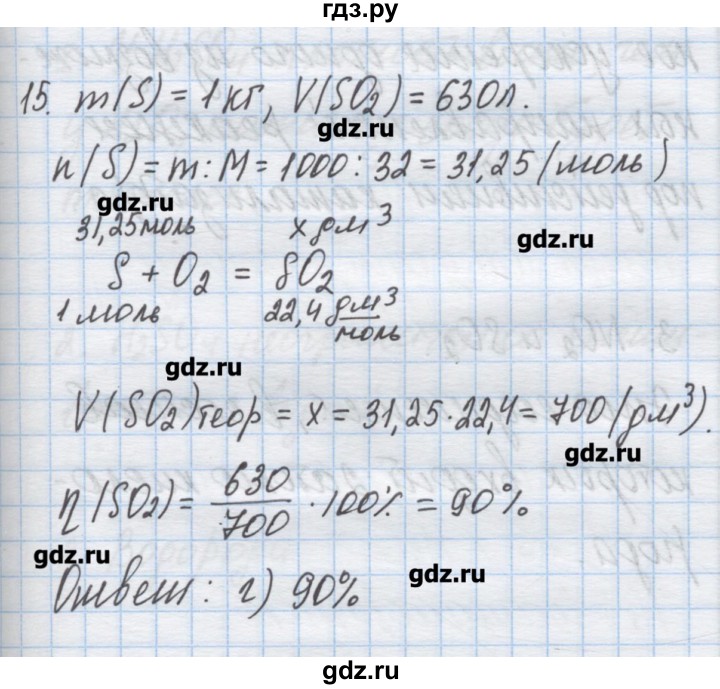 гдз.ру
15. m(S) = 1кг, V(SO₂) = 630л.
gdz.ru
n(S) = m : M = 1000 : 32 = 31,25 (моль)
gdz.ru
31,25моль x дм³
gdz.ru
S + O₂ = SO₂
1 моль 22,4 дм³/моль
gdz.ru
V(SO₂)теор = x = 31,25·22,4 = 700 (дм³).
gdz.ru
η(SO₂) = 630/700 · 100% = 90%
gdz.ru
gdz.ru
Ответ: г) 90%
gdz.ru